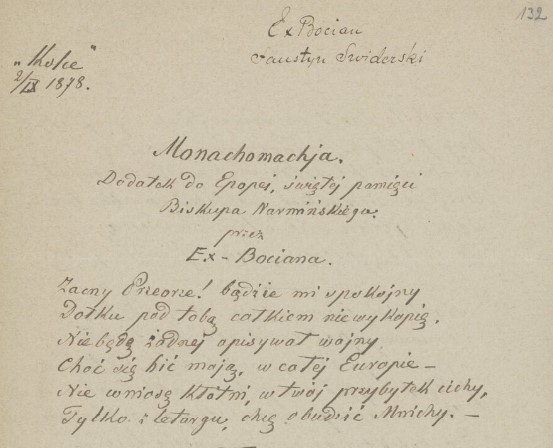 132
Ex Bocian
Faustyn Swiderski
"Kolce"
2/IX 1878.
Monachomachja.
Dodatek do Epopei, świętej pamięci
Biskupa Warmińskiego.
przez
Ex-Bociana.
Zacny Przeorze! bądźże mi spokojny
Dołku pod tobą całkiem nie wykopię,
Nie będę żadnej opisywał wojny
Choć się bić mają, w całej Europie –
Nie wniosę kłótni, w twój przybytek cichy,
Tylko z letargu, chcę obudzić Mnichy. –